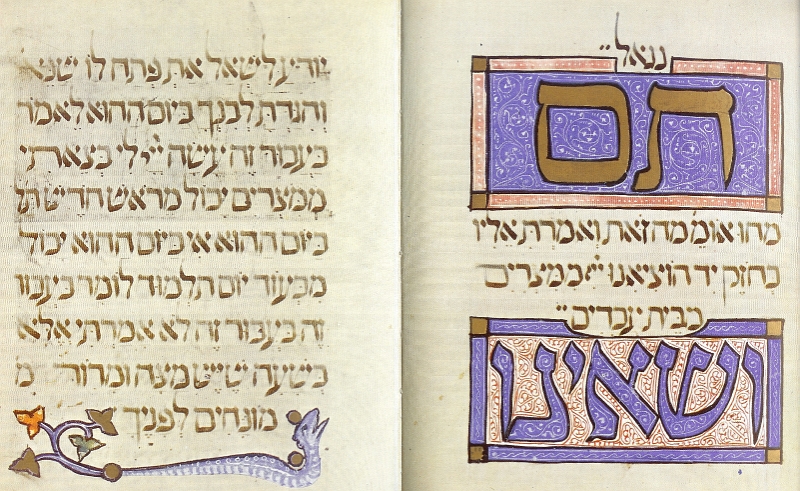 נגאל
תם
מהו אומ מה זאת ואמרת אליו
בחזק יד הוציאנו יי ממצרים
מבית עבדים
ושאינו
יודע לשאל את פתח לו שנא
והגדת לבנך ביום ההוא לאמר
בעבור זה עשה יי לי בצאתי
ממצרים יכול מראש חדש תל
ביום ההוא אי ביום ההוא יכול
מבעוד יום תלמוד לומר בעבור
זה בעבור זה לא אמרתי אלא
בשעה שיש מצה ומרור מ
מונחים לפניך